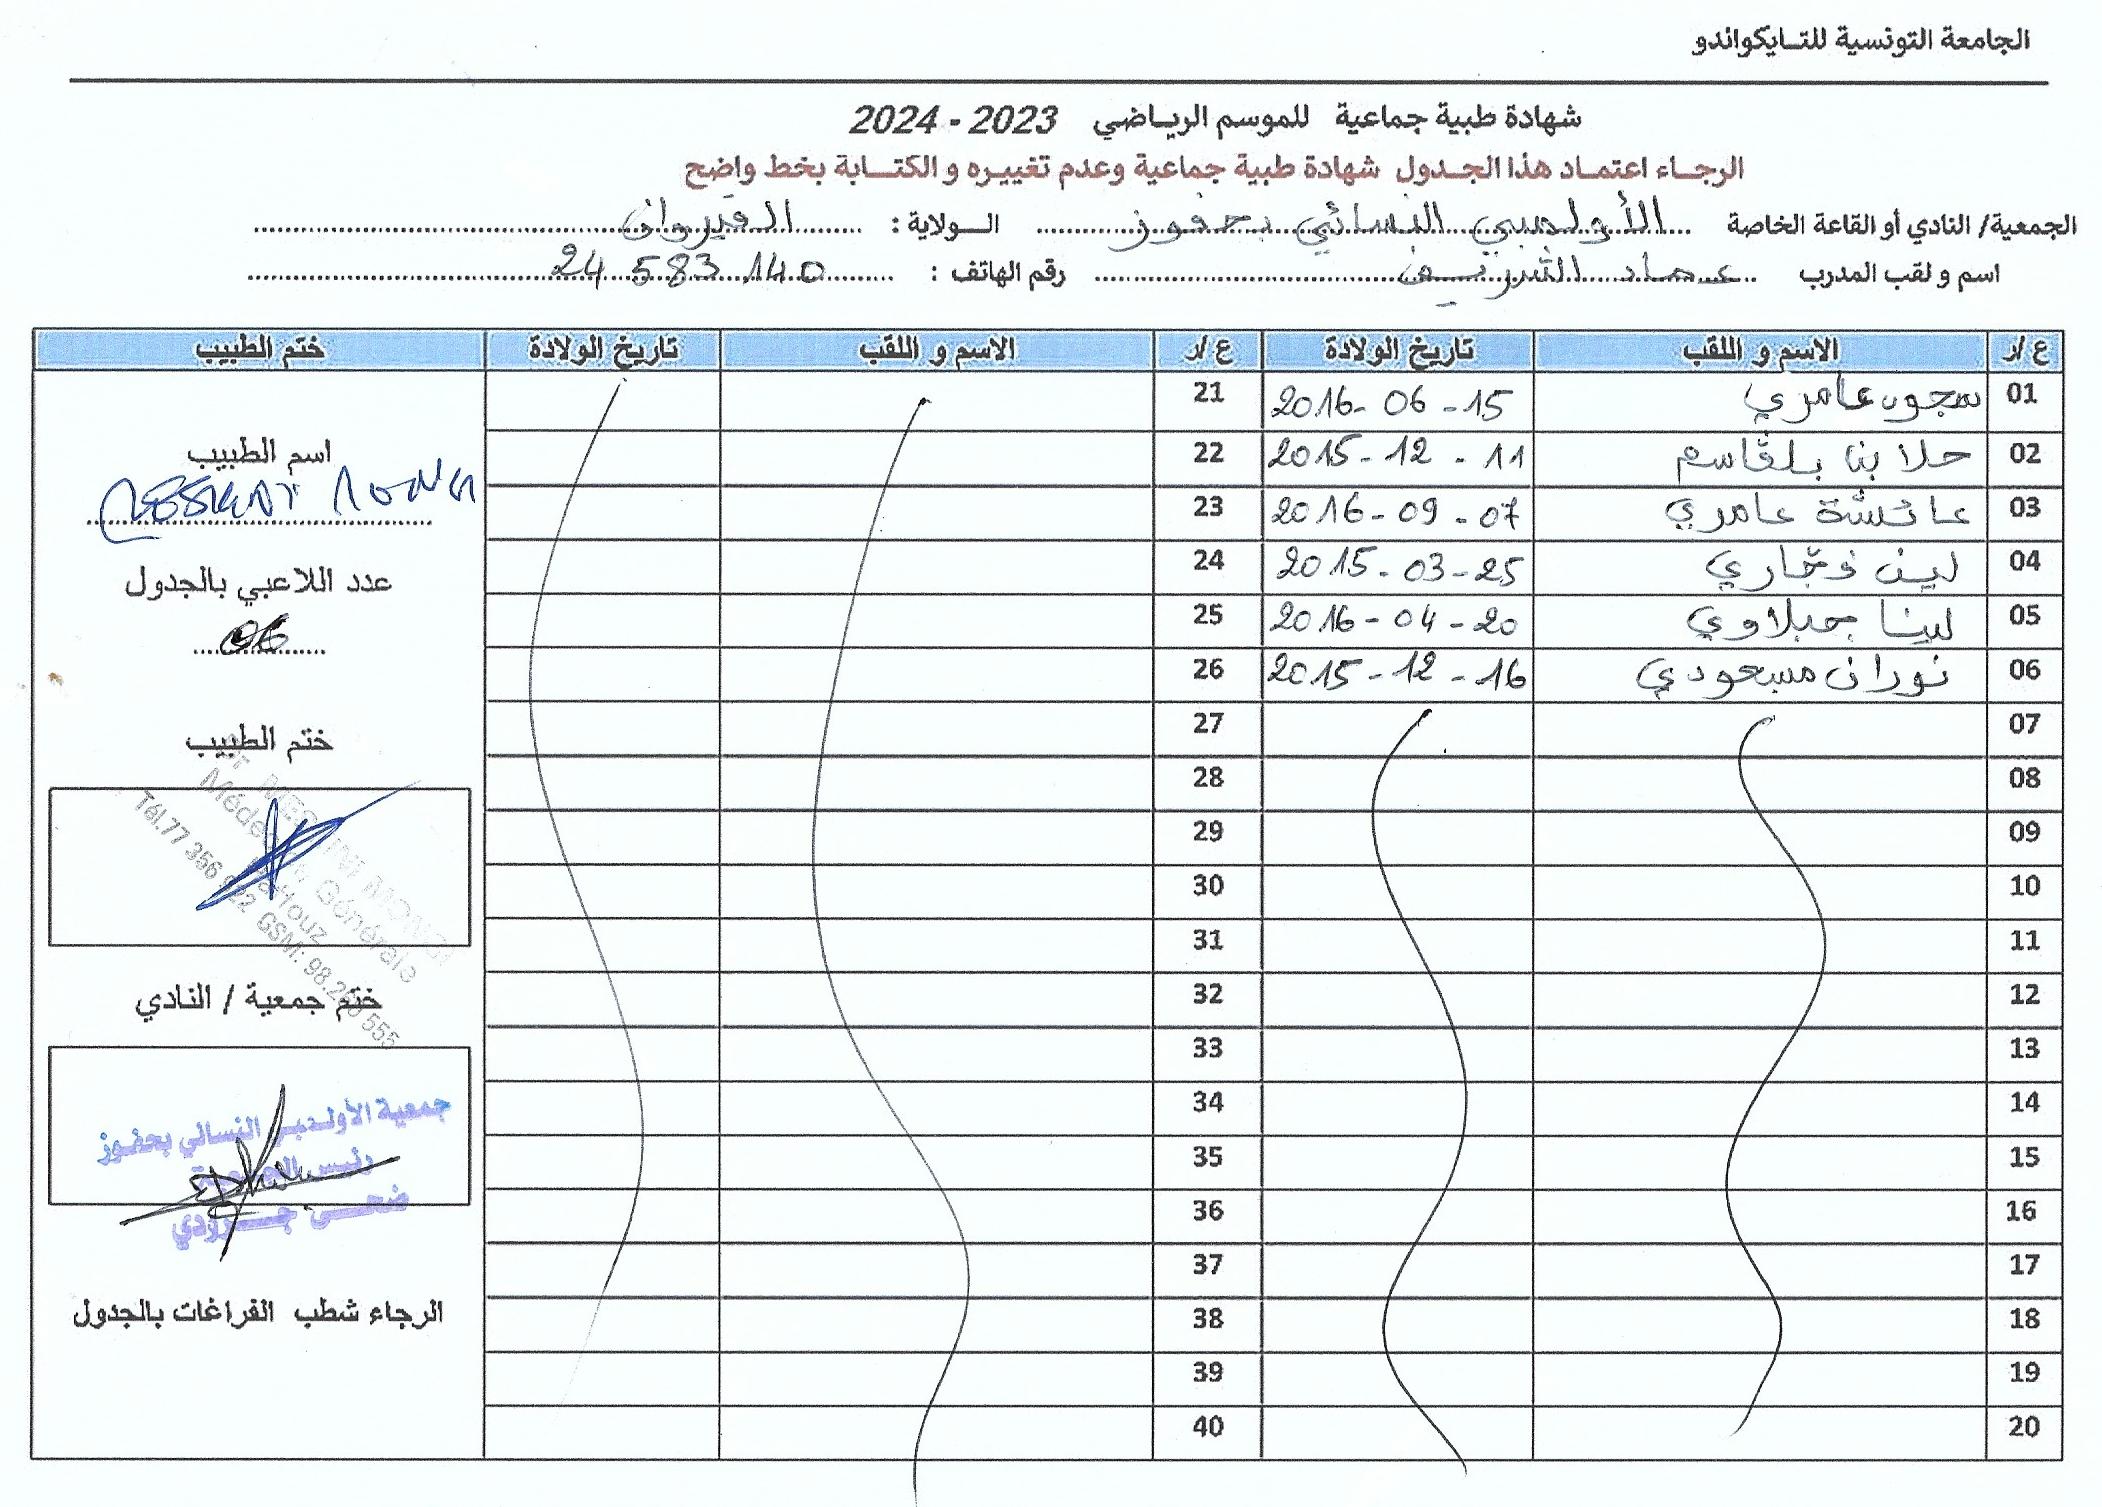 الجامعة التونسية للتايكواندو
شهادة طبية جماعية للموسم الرياضي 2023 - 2024
الرجاء اعتماد هذا الجدول شهادة طبية جماعية وعدم تغييره و الكتابة بخط واضح
الجمعية/ النادي أو القاعة الخاصة الأولمبي النسائي بحفوز الولاية : القيروان
اسم و لقب المدرب عماد الشريف رقم الهاتف : 24 583 140
ع/ر الاسم و اللقب تاريخ الولادة ع/ر الاسم و اللقب تاريخ الولادة ختم الطبيب
01 عامري 2016-06-15 21
02 حلا بن بلقاسم 2015-12-11 22
03 عائشة عامري 2016-09-07 23
04 لين 2015-03-25 24
05 لينا جبلاوي 2016-04-20 25
06 نوران مسعودي 2015-12-16 26
07 27
08 28
09 29
10 30
11 31
12 32
13 33
14 34
15 35
16 36
17 37
18 38
19 39
20 40
اسم الطبيب
عدد اللاعبي بالجدول
06
ختم الطبيب
Dr MONGI
Médecin Générale
Haffouz
Tél.77 356 922 GSM: 98. 555
ختم جمعية / النادي
جمعية الأولمبي النسائي بحفوز
رئيس الجمعية
ضحى جرودي
الرجاء شطب الفراغات بالجدول